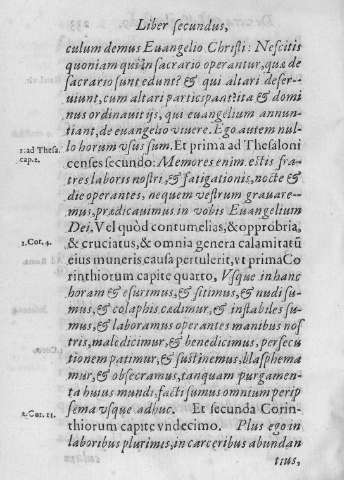 Liber secundus,
culum demus Euangelio Christi: Nescitis
quoniam qui in sacrario operantur, quæ de
sacrario sunt edunt? & qui altari deser-
uiunt, cum altari participant? ita & domi
nus ordinauit ijs, qui euangelium annun-
tiant, de euangelio viuere. Ego autem nul-
lo horum vsus sum. Et prima ad Thessaloni
1. ad Thesa.
cap. 2.
censes secundo: Memores enim estis fra-
tres laboris nostri, & fatigationis, nocte &
die operantes, nequem vestrum grauare-
mus, prædicauimus in vobis Euangelium
Dei. Vel quòd contumelias, & opprobria,
1. Cor. 4.
& cruciatus, & omnia genera calamitatũ
eius muneris causa pertulerit, vt prima Co
rinthiorum capite quarto, Vsque in hanc
horam & esurimus, & sitimus, & nudi su-
mus, & colaphis cædimur, & instabiles su-
mus, & laboramus operantes manibus nos
tris, maledicimur, & benedicimus, persecu
tionem patimur, & sustinemus, blasphema
mur, & obsecramus, tanquam purgamen-
ta huius mundi facti sumus omnium perip
sema vsque adhuc. Et secunda Corin-
2. Cor. 11.
thiorum capite vndecimo. Plus ego in
laboribus plurimis, in carceribus abundan
tius,